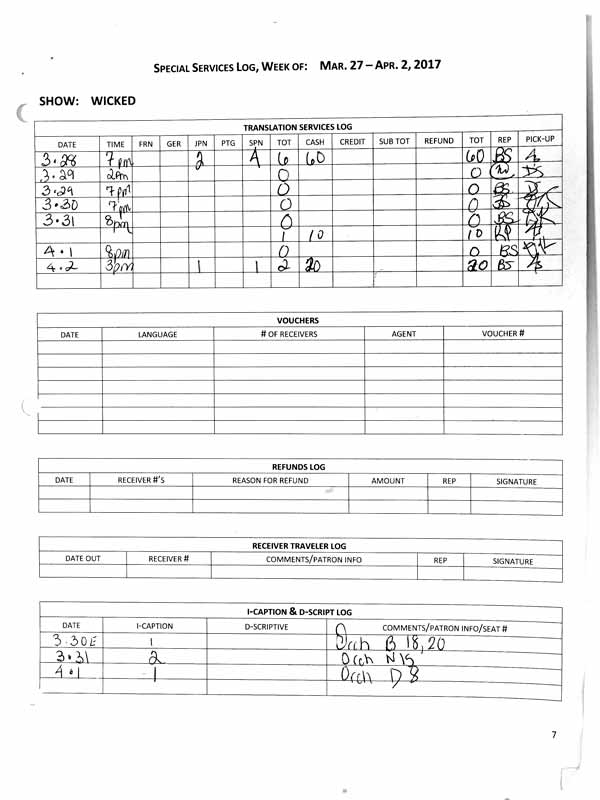 SPECIAL SERVICES LOG, WEEK OF: MAR. 27 – APR. 2, 2017
SHOW: WICKED
TRANSLATION SERVICES LOG
DATE TIME FRN GER JPN PTG SPN TOT CASH CREDIT SUB TOT REFUND TOT REP PICK-UP
3.28 7pm 2 4 6 60 60 BS
3.29 2pm 0 0
3.29 7pm 0 0 BS
3.30 7pm 0 0 BS
3.31 8pm 0 0 BS
1 10 10 RP
4.1 8pm 0 0 BS
4.2 3pm 1 1 2 20 20 BS
VOUCHERS
DATE LANGUAGE # OF RECEIVERS AGENT VOUCHER #
REFUNDS LOG
DATE RECEIVER #'S REASON FOR REFUND AMOUNT REP SIGNATURE
RECEIVER TRAVELER LOG
DATE OUT RECEIVER # COMMENTS/PATRON INFO REP SIGNATURE
I-CAPTION & D-SCRIPT LOG
DATE I-CAPTION D-SCRIPTIVE COMMENTS/PATRON INFO/SEAT #
3.30E 1 Orch B 18,20
3.31 2 Orch N15
4.1 1 Orch D8
7